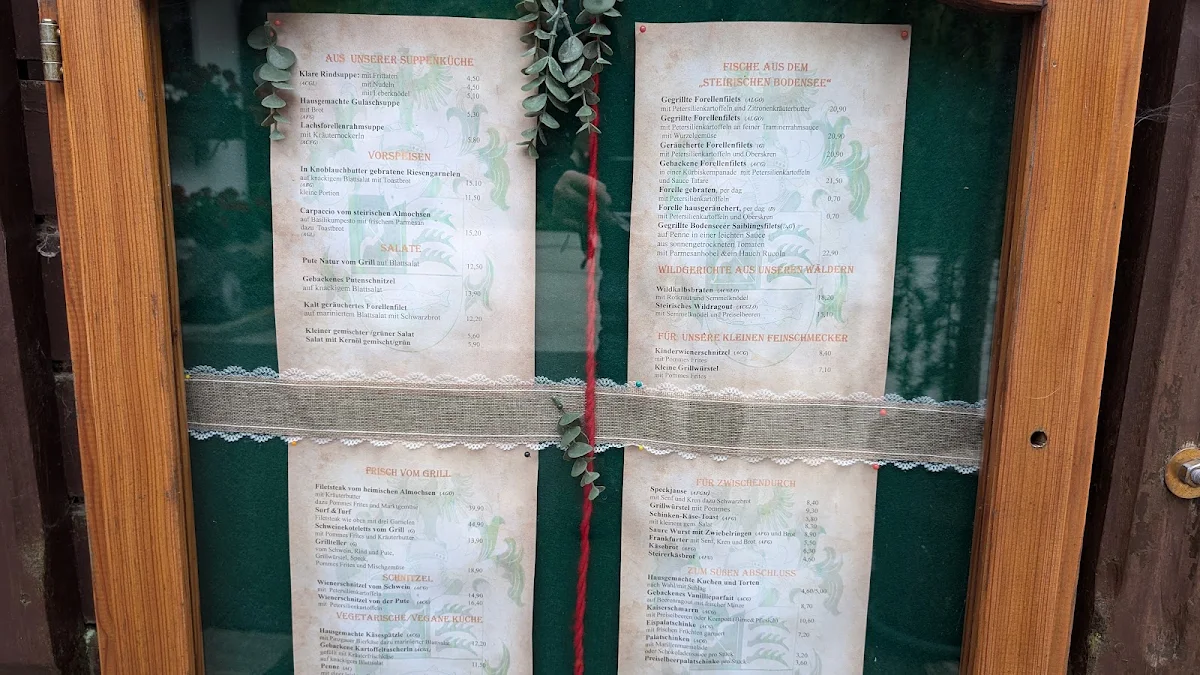 AUS UNSERER SUPPENKÜCHE
Klare Rindsuppe: mit Frittaten 4,50
(ACGL) mit Nudeln 4,50
mit Leberknödel 5,10
Hausgemachte Gulaschsuppe
mit Brot 5,30
Lachsforellenrahmsuppe
mit Kräuternockerln 5,80
VORSPEISEN
In Knoblauchbutter gebratene Riesengarnelen
auf knackigem Blattsalat mit Toastbrot 15,10
kleine Portion 11,50
Carpaccio vom steirischen Almochsen
auf Basilikumpesto mit frischem Parmesan
dazu Toastbrot 15,20
SALATE
Pute Natur vom Grill auf Blattsalat 12,50
Gebackenes Putenschnitzel
auf knackigem Blattsalat 13,90
Kalt geräuchertes Forellenfilet
auf mariniertem Blattsalat mit Schwarzbrot 12,20
Kleiner gemischter/grüner Salat 5,60
Salat mit Kernöl gemischt/grün 5,90
FISCHE AUS DEM
„STEIRISCHEN BODENSEE“
Gegrillte Forellenfilets (ALGD)
mit Petersilienkartoffeln und Zitronenkräuterbutter 20,90
Gegrillte Forellenfilets (ALGO)
mit Petersilienkartoffeln an feiner Traminerrahmsauce
mit Wurzelgemüse 20,90
Geräucherte Forellenfilets
mit Petersilienkartoffeln und Oberskren 20,90
Gebackene Forellenfilets
in einer Kürbiskernpanade mit Petersilienkartoffeln
und Sauce Tatare 21,50
Forelle gebraten, per dag
mit Petersilienkartoffeln 0,70
Forelle hausgeräuchert, per dag
mit Petersilienkartoffeln und Oberskren 0,70
Gegrillte Bodenseeer Saiblingsfilets
auf Penne in einer leichten Sauce
aus sonnengetrockneten Tomaten
mit Parmesanhobel & ein Hauch Rucola 22,90
WILDGERICHTE AUS UNSEREN WÄLDERN
Wildkalbsbraten
mit Rotkraut und Semmelknödel
Steirisches Wildragout
mit Semmelknödel und Preiselbeeren 15,10
FÜR UNSERE KLEINEN FEINSCHMECKER
Kinderwienerschnitzel (ACG) 8,40
mit Pommes Frites
Kleine Grillwürstel 7,10
mit Pommes Frites
FRISCH VOM GRILL
Filetsteak vom heimischen Almochsen
mit Kräuterbutter
dazu Pommes Frites und Marktgemüse
Surf & Turf
Filetsteak wie oben mit drei Garnelen
Schweinekoteletts vom Grill
mit Pommes Frites und Kräuterbutter 13,90
Grillteller
vom Schwein, Rind und Pute,
Grillwürstel, Speck,
Pommes Frites und Mischgemüse 18,90
SCHNITZEL
Wienerschnitzel vom Schwein
mit Petersilienkartoffeln 14,90
Wienerschnitzel von der Pute 16,40
mit Petersilienkartoffeln
VEGETARISCHE/VEGANE KÜCHE
Hausgemachte Käsespätzle
12,20
Gebackene Kartoffeltascherln
auf knackigem Blattsalat 11,50
Penne
FÜR ZWISCHENDURCH
Speckjause
mit Senf und Kren dazu Schwarzbrot 8,40
Grillwürstel mit Pommes 9,30
Schinken-Käse-Toast
mit kleinem gem. Salat
Saure Wurst mit Zwiebelringen und Brot
Frankfurter mit Senf, Kren und Brot
Käsebrot
Steirerkäsbrot
ZUM SÜßEN ABSCHLUSS
Hausgemachte Kuchen und Torten
nach Wahl mit Schlag
Gebackenes Vanilleparfait
8,70
Kaiserschmarrn
Eispalatschinke
mit frischen Früchten garniert 7,20
Palatschinken
Preiselbeerpalatschinke pro Stück